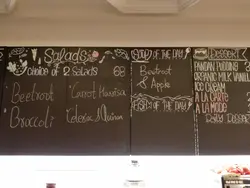 Salads
Choice of 2 Salads 68
Beetroot
Carrot
Broccoli
Celeriac Quinoa
SOUP OF THE DAY
Beetroot
& Apple
FISH OF THE DAY
DESSERT
PANDAN PUDDING
ORGANIC MILK VANILL
ICE CREAM
A LA CARTE
A LA MODE
DAILY DESSERT